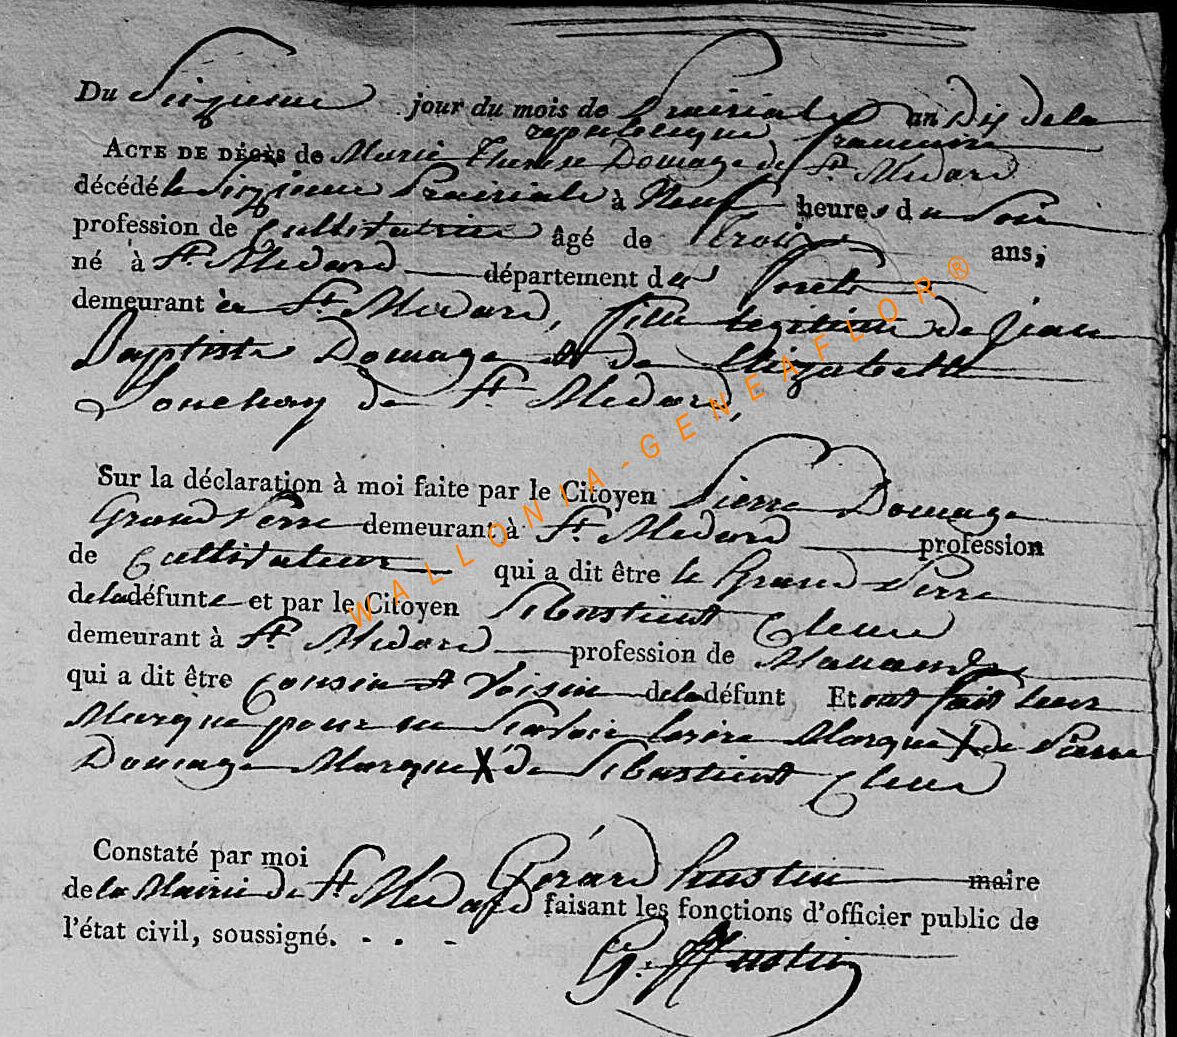 Du Sizieme jour du mois de Prairiale an Dix de la
republicque francaise
ACTE DE DÉCÈS de Marie Therese Domage de St. Medard
décédé le Sizieme Prairiale à Neuf heures du Soir
profession de Cultivatrice âgé de Trois ans,
né à St. Medard département des Forets
demeurant à St. Medard, fille legitime de Jean
Baptiste Domage et de Elizabeth
de St. Medard,
Sur la déclaration à moi faite par le Citoyen Pierre Domage
Grand Perre demeurant à St. Medard profession
de Cultivateur qui a dit être le Grand Perre
de la défunte et par le Citoyen Sibastient
demeurant à St. Medard profession de
qui a dit être Cousin et Voisin de la défunt Et ont fait leur
Marque pour ne Scavoir Marque X de Pierre
Domage Marque X de Sibastient
Constaté par moi Gérard hustin maire
de la Mairie de St. Medard faisant les fonctions d'officier public de
l'état civil, soussigné.
G. Hustin
WALLONIA-GENEAFLOR®